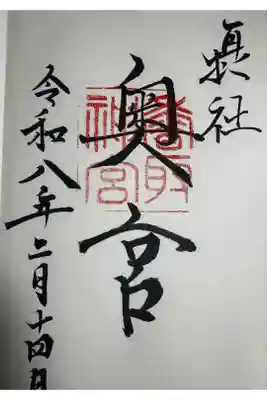 奥宮
香取
神宮
令和八年二月十四日